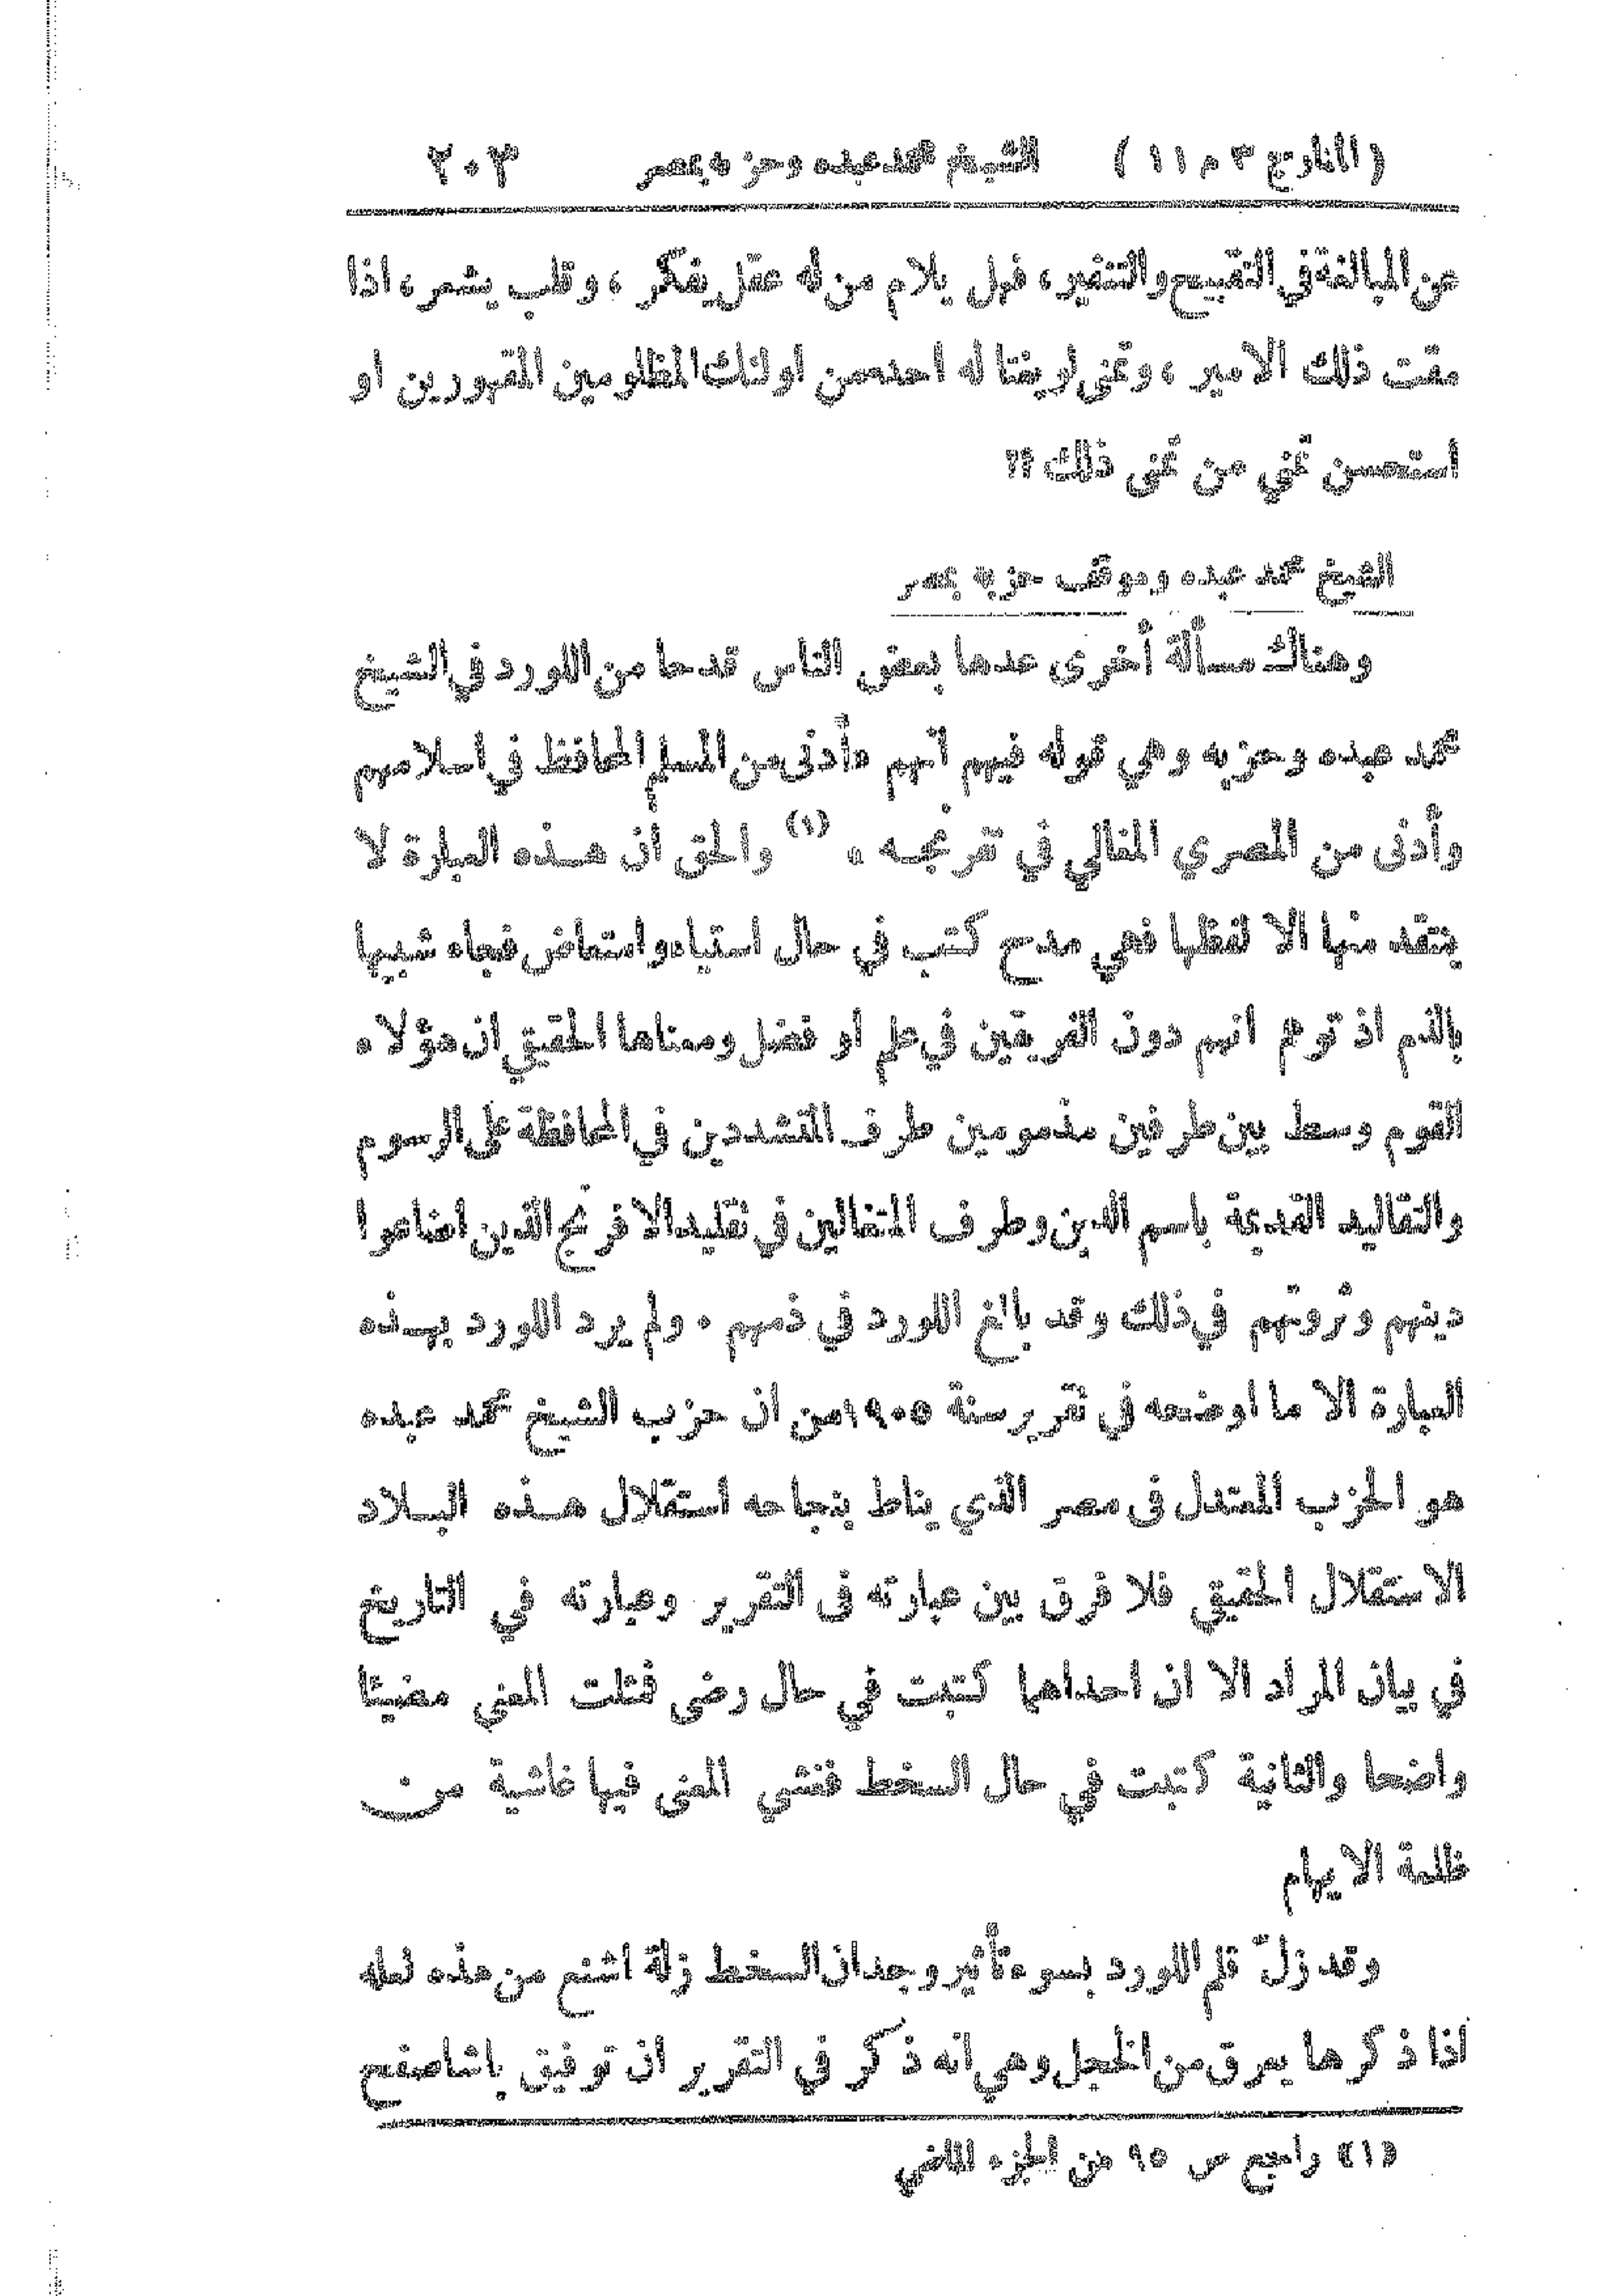 (المنار ج ٣ م ١١) الشيخ محمد عبده وحزبه بمصر ٢٠٣
عن المبالغة في التقبيح والتنفير، فهل يلام من له عقل يفكر ، وقلب يشعر ، اذا
مقت ذلك الامير ، وتمنى لو يغتاله احد من اولئك المظلومين المقهورين او
استحسن تمني من تمنى ذلك ؟؟
الشيخ محمد عبده وموقف حزبه بمصر
وهناك مسألة أخرى عدها بعض الناس قدحا من اللورد في الشيخ
محمد عبده وحزبه وهي قوله فيهم انهم «أدنى من المسلم المحافظ في اسلامهم
وأدنى من المصري المتغالي في تفرنجه » (١) والحق أن هـذه العبارة لا
ينتقد منها الا لفظها فهي مدح كتب في حال استياء وامتعاض فجاء شبيها
بالذم اذ توهم انهم دون الفريقين في علم او فضل ومعناها الحقيقي ان هؤلاء
القوم وسط بين طرفين مذمومين طرف المتشددين في المحافظة على الرسوم
والتقاليد القديمة باسم الدين وطرف المتغالين في تقليد الافرنج الذين اضاعوا
دينهم وثروتهم في ذلك وقد بالغ اللورد في ذمهم . ولم يرد اللورد بهـذه
العبارة الا ما اوضحه في تقرير سنة ١٩٠٥ من ان حزب الشيخ محمد عبده
هو الحزب المعتدل في مصر الذي يناط بنجاحه استقلال هـذه البـلاد
الاستقلال الحقيقي فلا فرق بين عبارته في التقرير وعبارته في التاريخ
في بيان المراد الا ان احداهما كتبت في حال رضى فمثلت المعنى مضيئا
واضحا والثانية كتبت في حال السخط فغشي المعنى فيها غاشية من
ظلمة الايهام
وقد زلّ قلم اللورد بسوء تأثير وجدان السخط زلة اشنع من هذه لعله
اذا ذكرها يعرق من الخجل وهي انه ذكر في التقرير ان توفيق باشا صفح
(١) راجع ص ٩٥ من الجزء الماضي